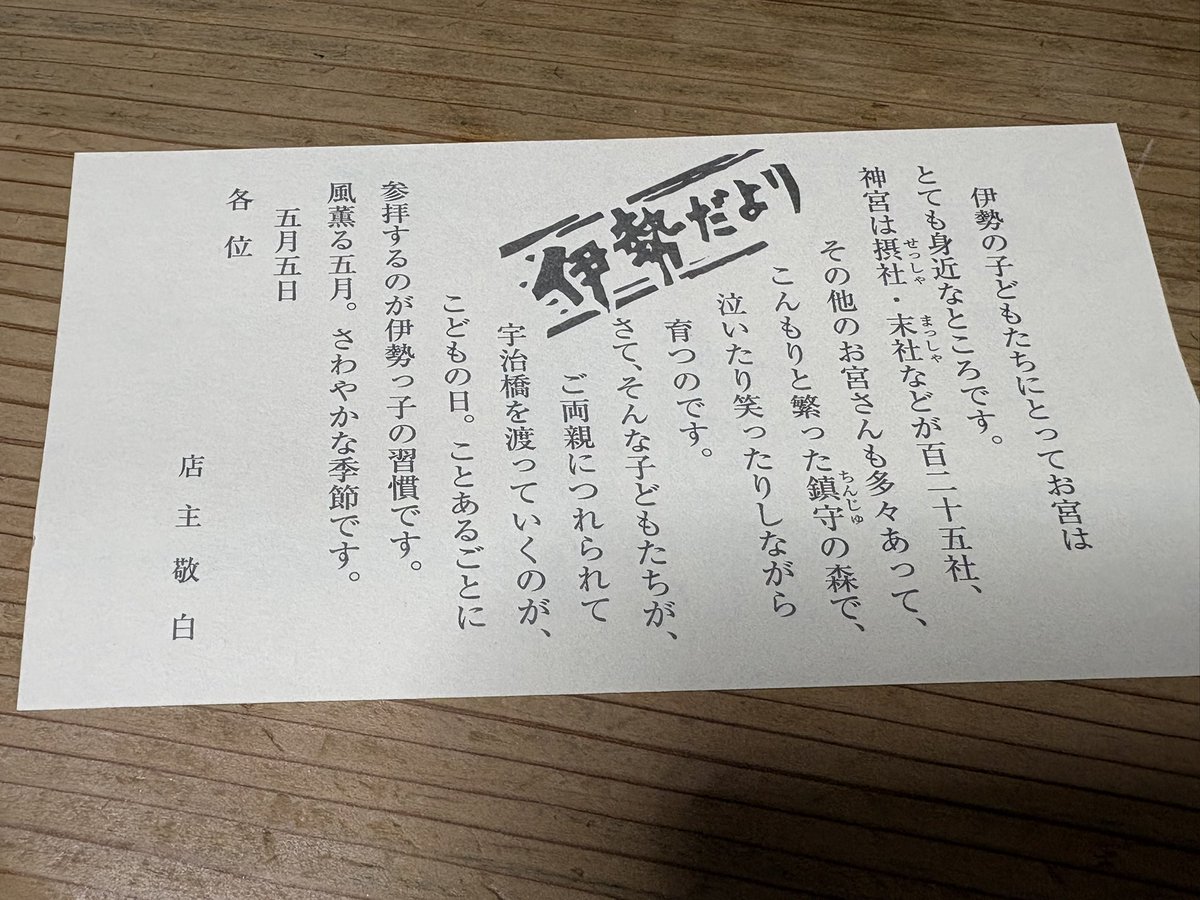 伊勢の子どもたちにとってお宮は
とても身近なところです。
神宮は摂社・末社などが百二十五社、
せっしゃ
まっしゃ
その他のお宮さんも多々あって、
こんもりと繁った鎮守の森で、
ちんじゅ
泣いたり笑ったりしながら
育つのです。
さて、そんな子どもたちが、
ご両親につれられて
宇治橋を渡っていくのが、
こどもの日。ことあるごとに
参拝するのが伊勢っ子の習慣です。
風薫る五月。さわやかな季節です。
五月五日
各位
店主敬白
伊勢だより